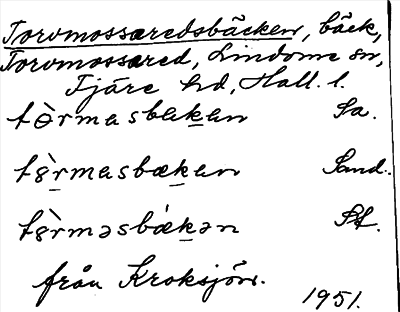 Torvmossaredsbäcken, bäck,
Torvmossared, Lindome sn,
Fjäre hd, Hall. l.
tòrmasbækan Sa.
tȣ̀rmasbækan Sand.
tȣ̀rməsbækən Pf.
från Kroksjön.
1951.